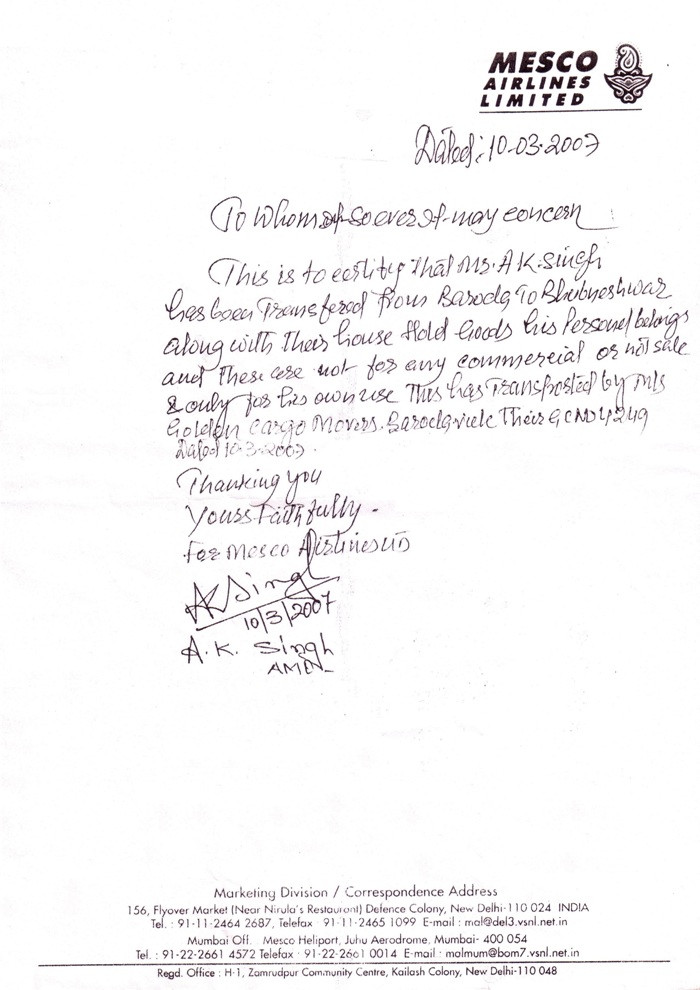 MESCO
AIRLINES
LIMITED
Dated: 10-03-2007
To Whom So ever It may concern
This is to certify That Mr. A.K. Singh
has been Transfered from Baroda To Bhubneshwar
along with Their house Hold Goods his Personel belongs
and These are not for any commercial or not sale
& only for his own use This has Transpoted by M/s
Golden Cargo Movers. Baroda vide Their GC No 4249
Dated 10-3-2007.
Thanking you
Yours Faithfully -
For Mesco Airlines LTD
AK Singh
10/3/2007
A. K. Singh
AME
Marketing Division / Correspondence Address
156, Flyover Market (Near Nirula's Restaurant) Defence Colony, New Delhi-110 024 INDIA
Tel. : 91-11-2464 2687, Telefax 91-11-2465 1099 E-mail : mal@del3.vsnl.net.in
Mumbai Off. Mesco Heliport, Juhu Aerodrome, Mumbai- 400 054
Tel. : 91-22-2661 4572 Telefax · 91-22-2661 0014 E-mail : malmum@bom7.vsnl.net.in
Regd. Office : H-1, Zamrudpur Community Centre, Kailash Colony, New Delhi-110 048